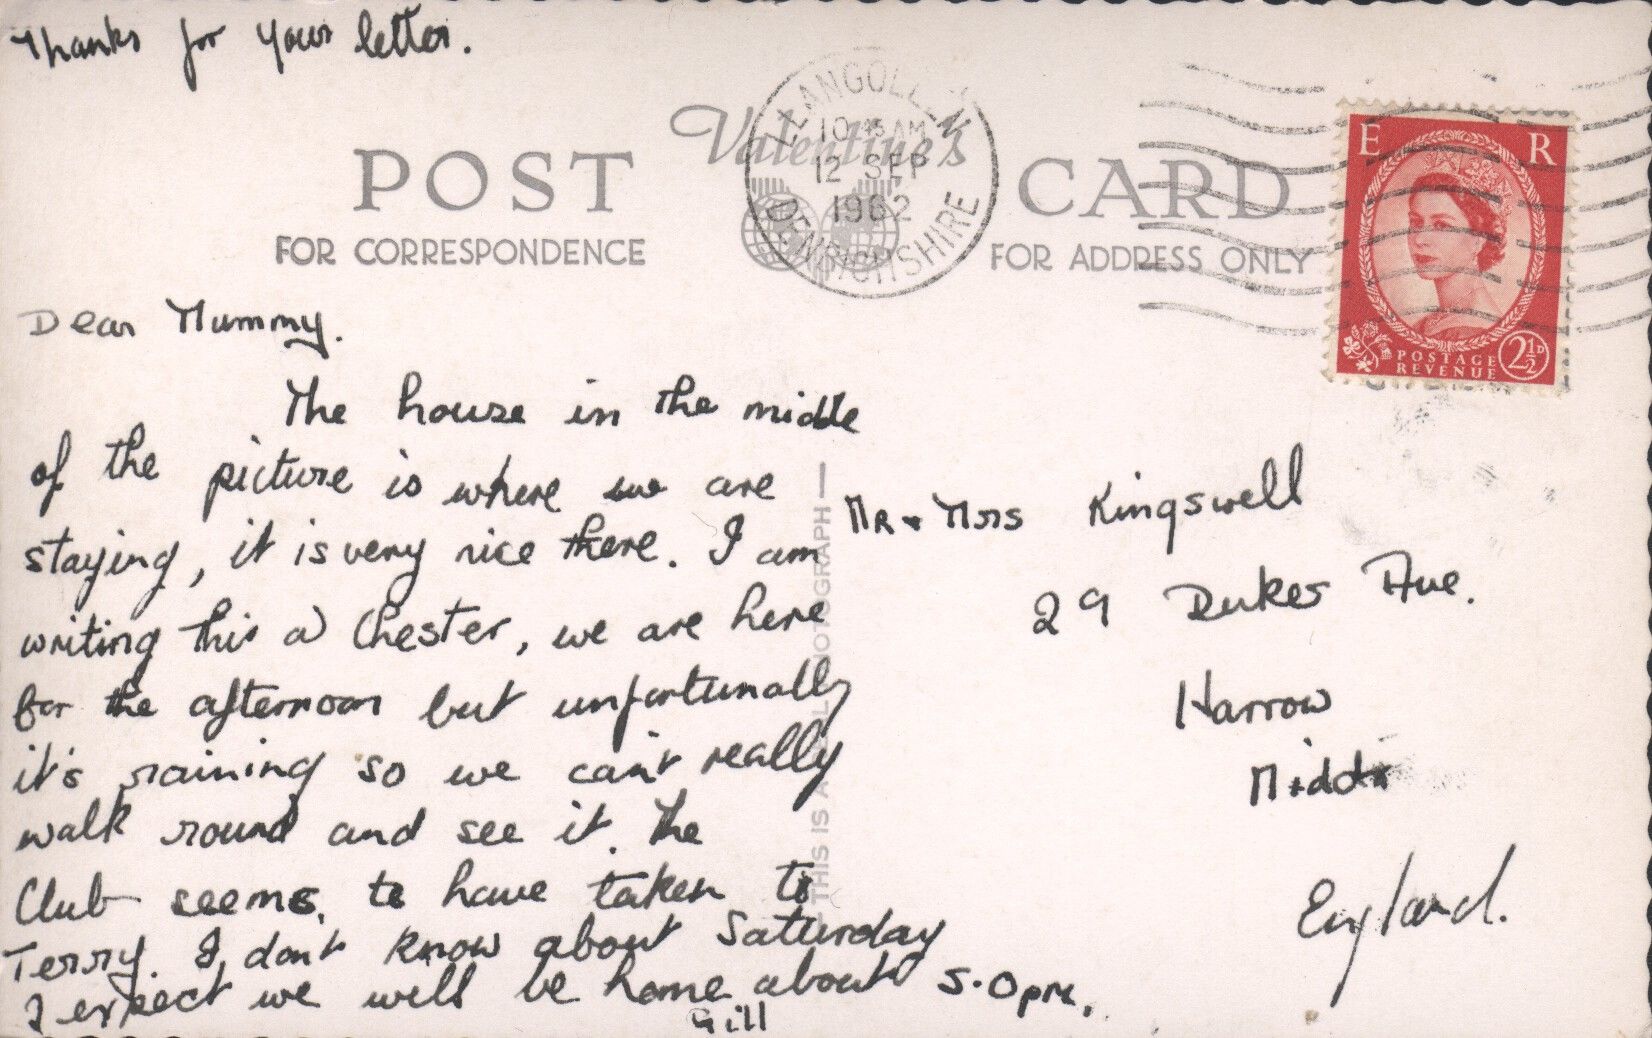 Thanks for your letter.
Valentine's
POST CARD
FOR CORRESPONDENCE
FOR ADDRESS ONLY
LLANGOLLEN
10 45 AM
12 SEP
1962
DENBIGHSHIRE
E R
POSTAGE
REVENUE
2½D
Dear Mummy.
The house in the middle
of the picture is where we are
staying, it is very nice there. I am
writing this a Chester, we are here
for the afternoon but unfortunally
it's raining so we can't really
walk round and see it. The
Club seems to have taken to
Terry. I don't know about Saturday
I expect we will be home about 5.0pm.
Gill
THIS IS A REAL PHOTOGRAPH
Mr + Mrs Kingswell
29 Dukes Ave.
Harrow
Middx
England.